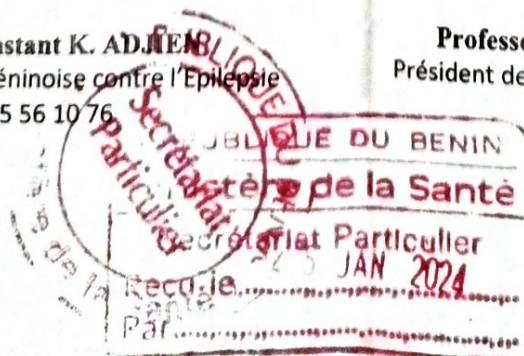 nstant K. ADJIEN
éninoise contre l'Epilepsie
5 56 10 76
Professe
Président de
RÉPUBLIQUE
Secrétariat
Particulier
de la Santé
UBLIQUE DU BENIN
tère de la Santé
Secrétariat Particulier
Reçu le 25 JAN 2024
Par